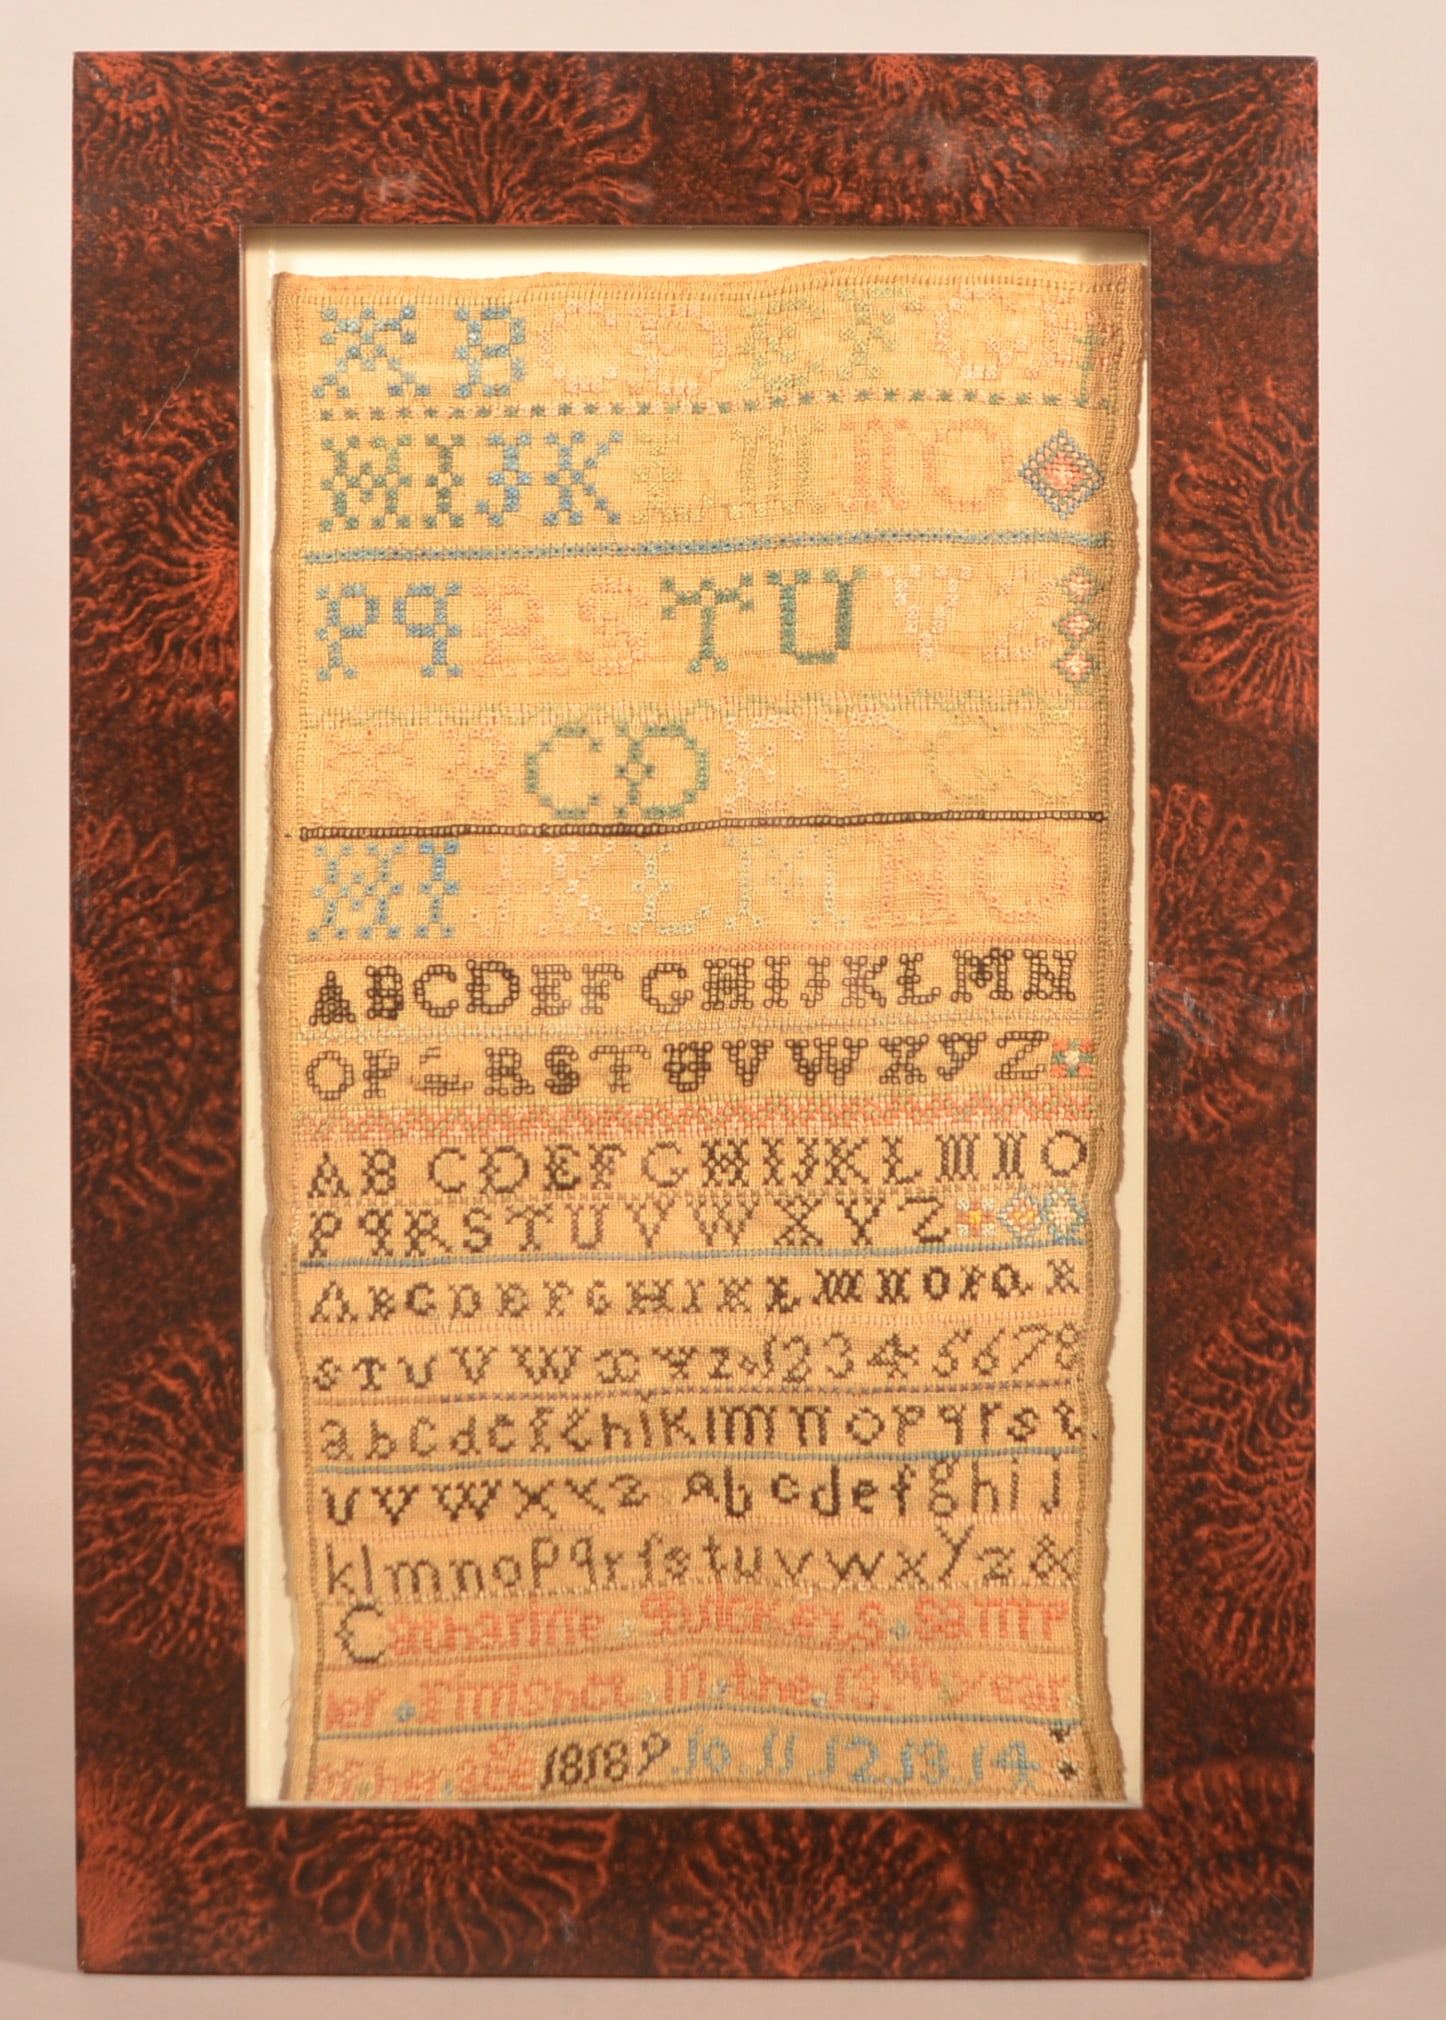 A B C D E F G H
W I J K L M N O
P Q R S T U V
A B C D E F G
W I J K L M N O
A B C D E F G H I J K L M N
O P Q R S T U V W X Y Z
A B C D E F G H I J K L M N O
P q R S T U V W X Y Z
A B C D E F G H I K L M N O P Q R
S T U V W X Y Z 1 2 3 4 5 6 7 8
a b c d e f g h i k l m n o p q r s t
u v w x y z a b c d e f g h i j
k l m n o p q r ſ s t u v w x y z &
Catharine Quickeys Samp
ler Finishet in the 13th year
of her age 1818 9 10 11 12 13 14